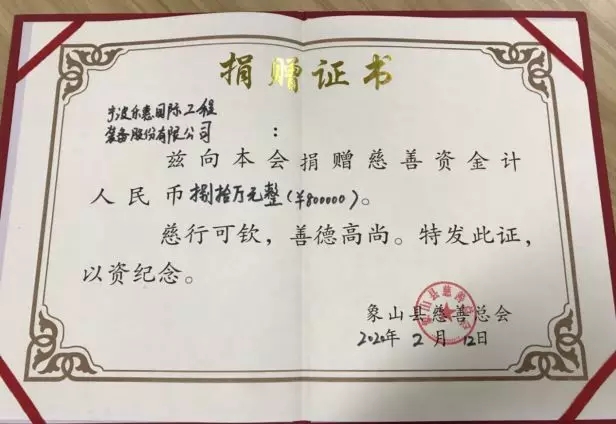 捐赠证书
宁波乐惠国际工程
装备股份有限公司：
兹向本会捐赠慈善资金计
人民币捌拾万元整(¥800000)。
慈行可钦，善德高尚。特发此证，
以资纪念。
象山县慈善总会
象山县慈善总会
2020年2月12日